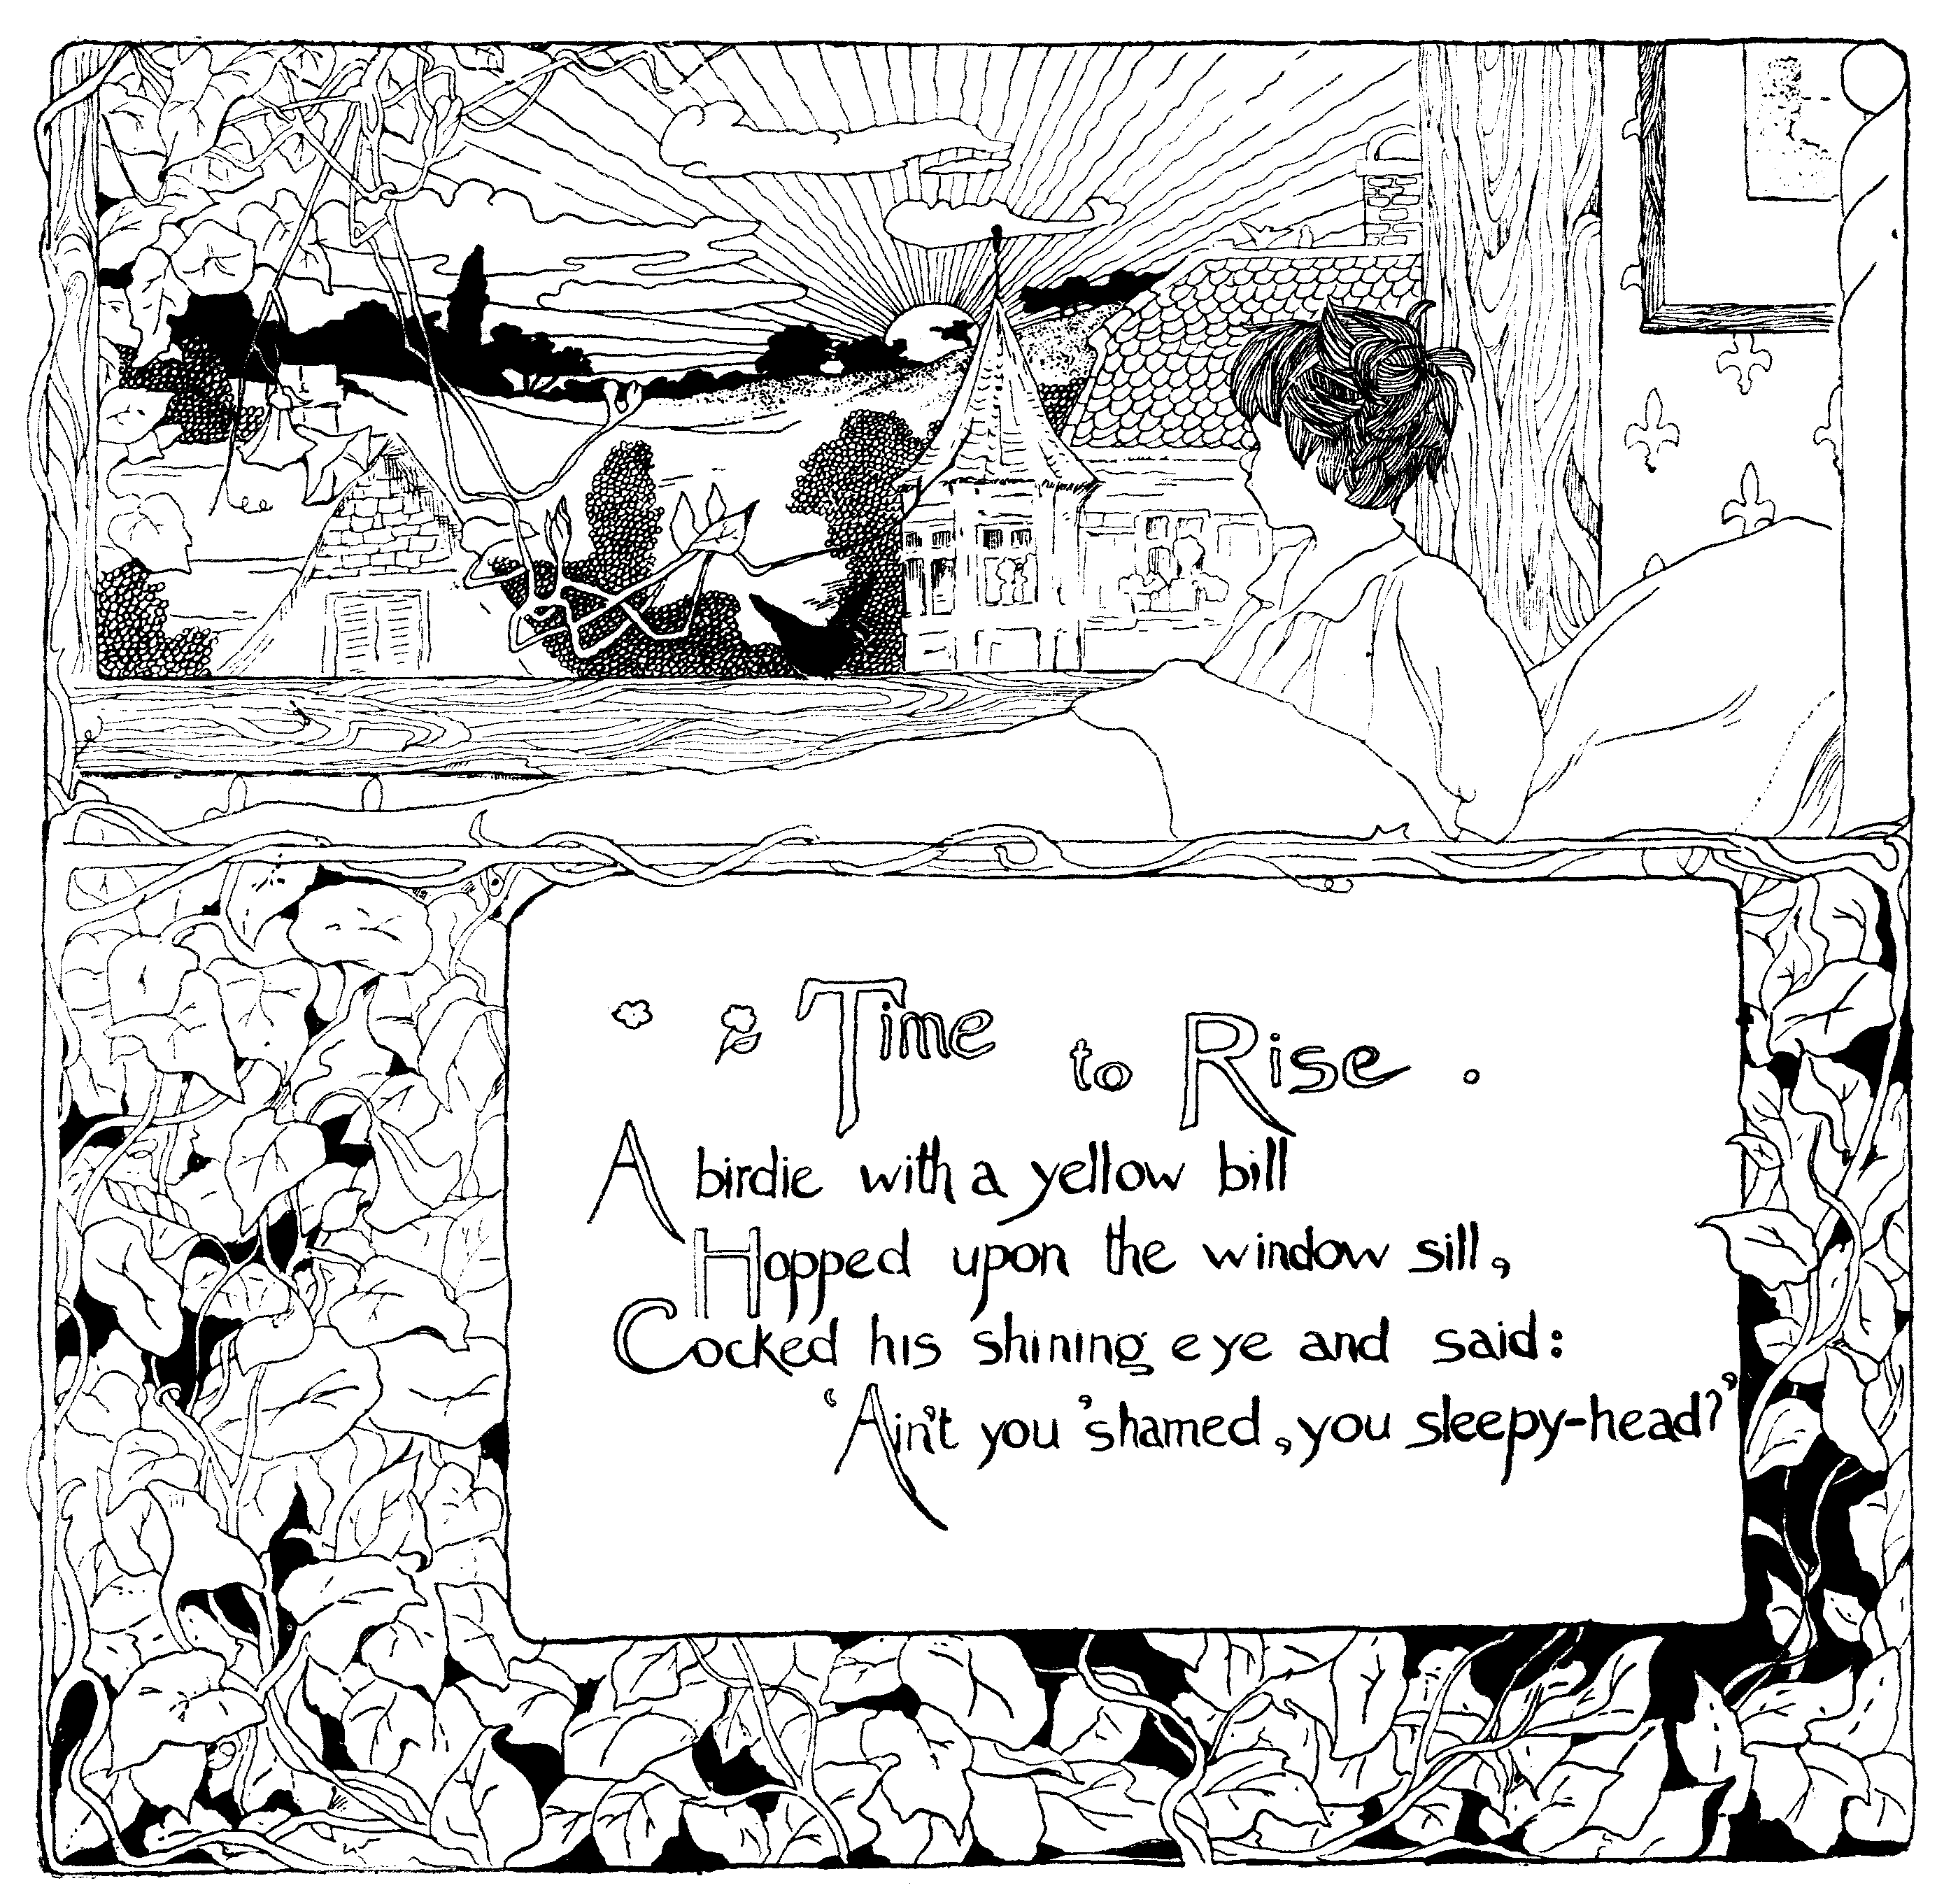 Time to Rise.
A birdie with a yellow bill
Hopped upon the window sill,
Cocked his shining eye and said:
'Ain't you 'shamed, you sleepy-head?'